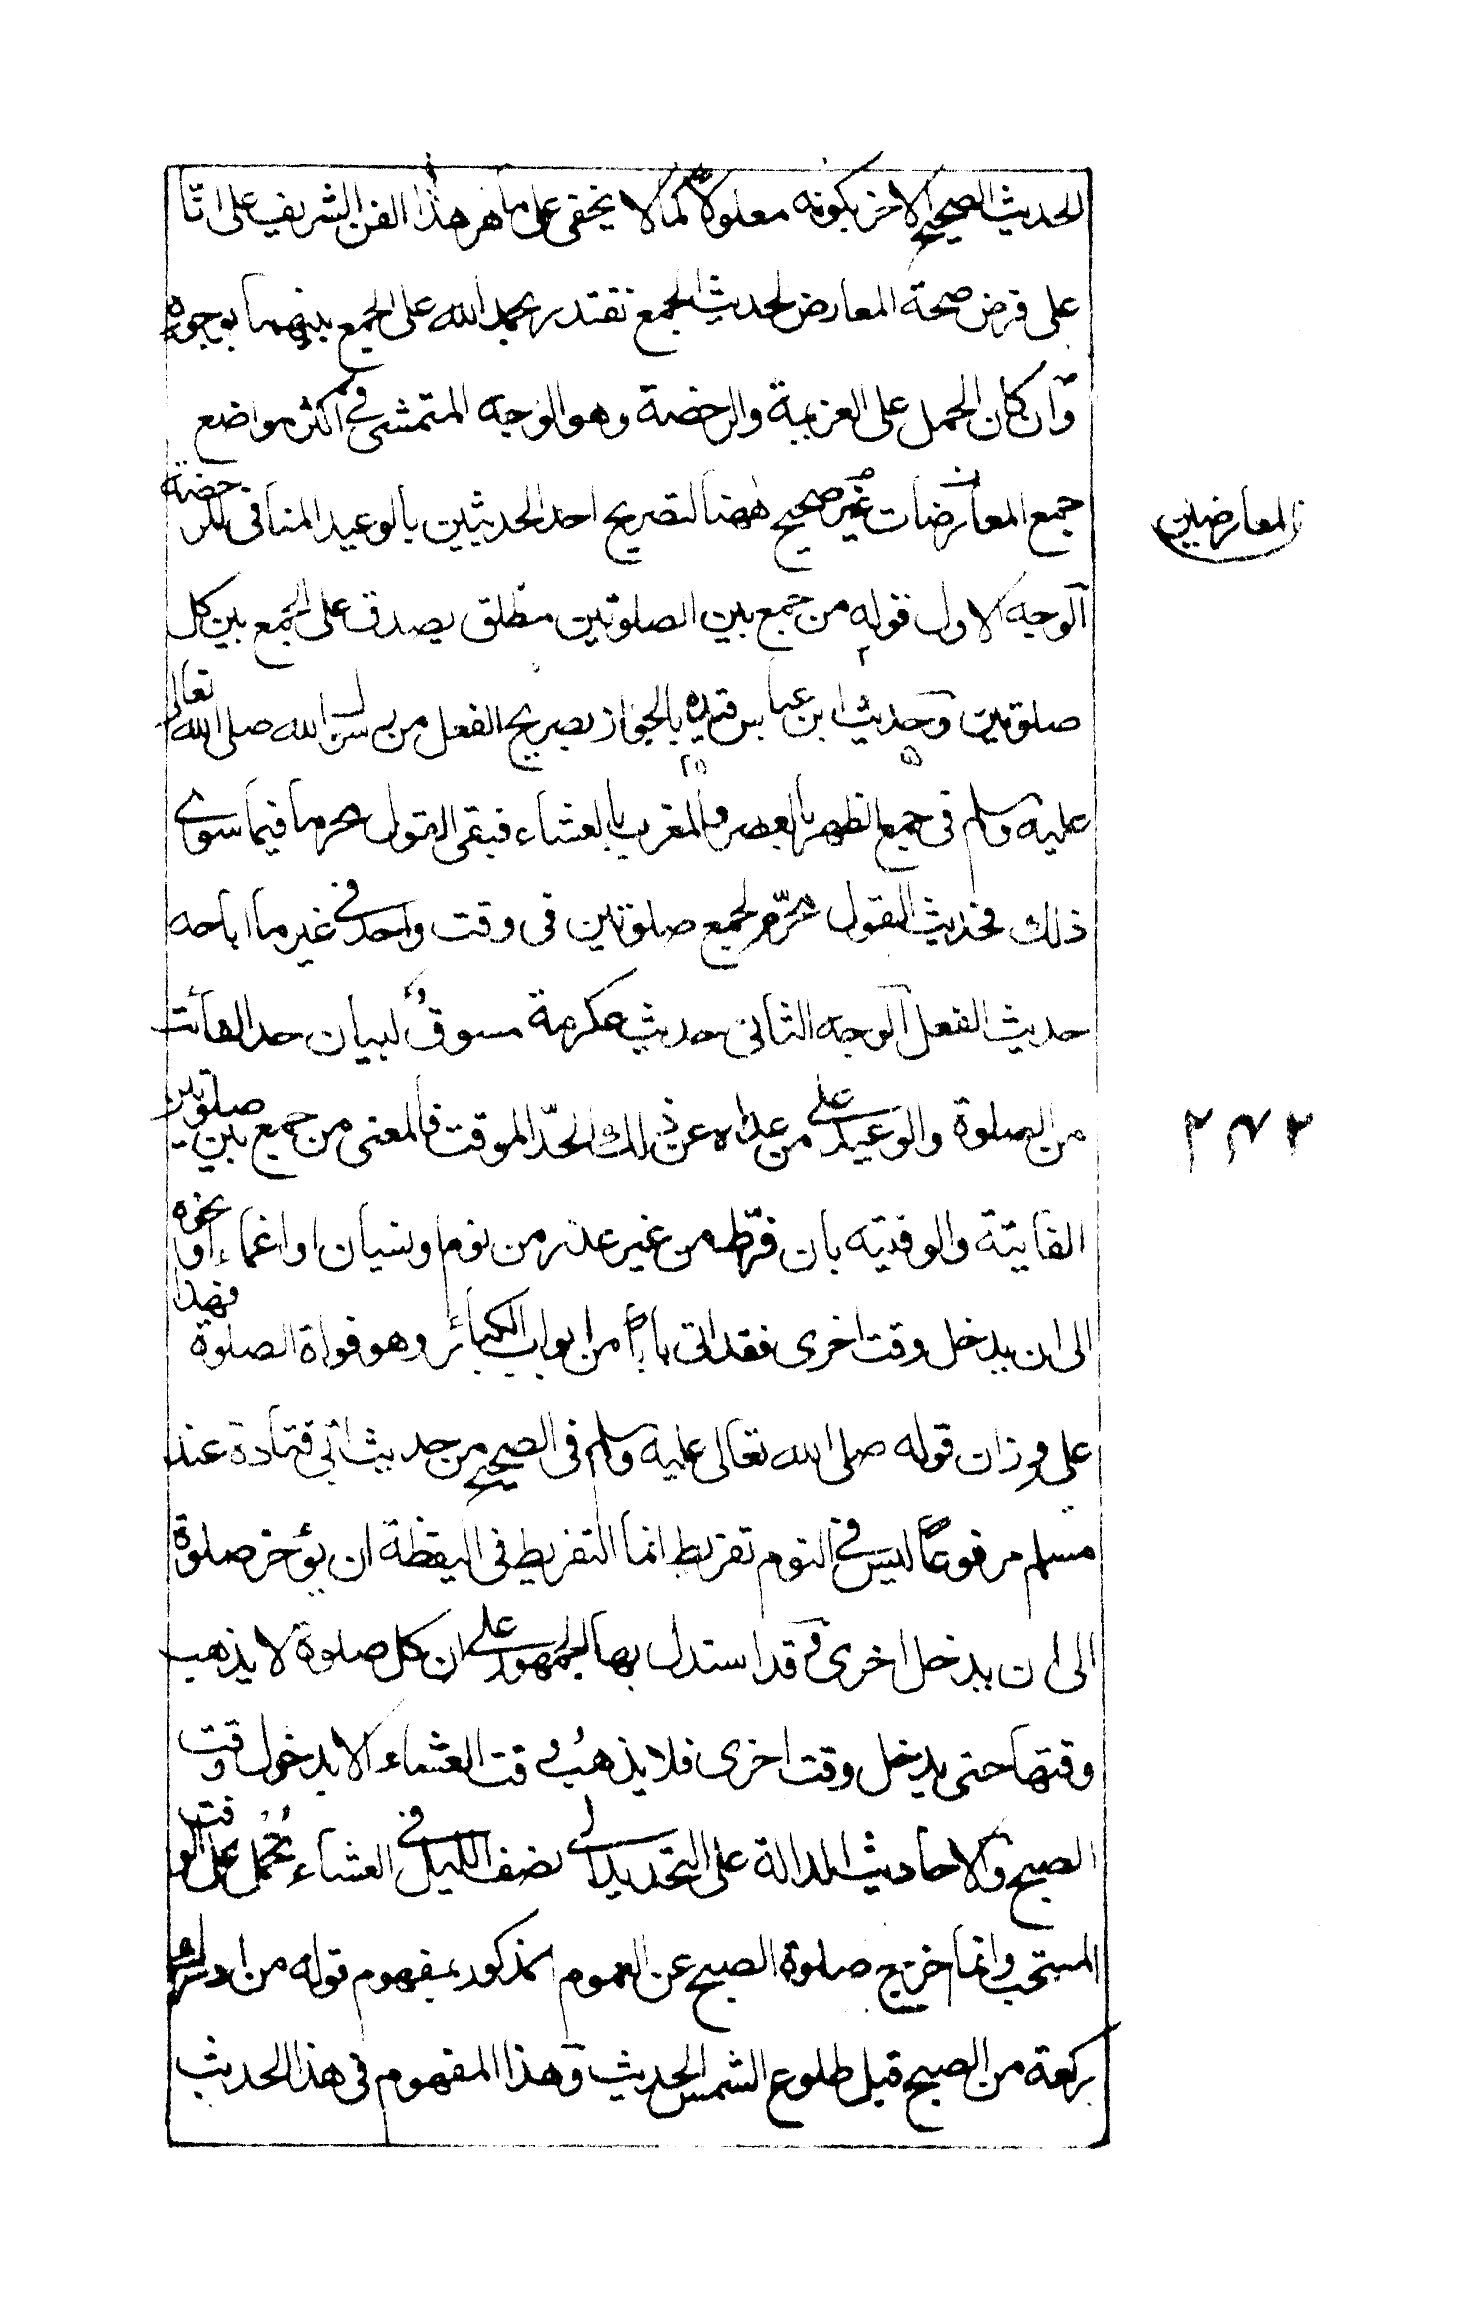 الحديث الصحيح الاخر بكونه معلولا كما لا يخفى على ماهر هذا الفن الشريف على انّا
على فرض صحة المعارض لحديث الجمع نقتدر بحمد الله على الجمع بينهما بوجوه
وان كان الحمل على العزيمة والرخصة وهو الوجه المتمشى فى اكثر مواضع
جمع المعارضات غير صحيح ههنا لتصريح احد الحديثين بالوعيد المنافى للرخصة
المعارضين
الوجه الاول قوله من جمع بين الصلوتين مطلق يصدق على الجمع بين كل
صلوتين وحديث ابن عباس قيده بالجواز بصريح الفعل من رسول الله صلى الله تعالى
عليه وسلم فى جمع الظهر بالعصر والمغرب بالعشاء فبقى القول محرما فيما سوى
ذلك فحديث القول محرّم لجمع صلوتين فى وقت واحد فى غير ما اباحه
حديث الفعل الوجه الثانى حديث عكرمة مسوق لبيان حد الفائت
من الصلوة والوعيد على من عداه عن ذلك الحدّ الموقت فالمعنى من جمع بين صلوتين
الفايتة والوقتيه بان فرّط من غير عذر من نوم او نسيان او اغماء او نحوه
الى ان يدخل وقت اخرى فقد اتى بابا من ابواب الكبائر وهو فواة الصلوة فهذا
على وزان قوله صلى الله تعالى عليه وسلم فى الصحيح من حديث ابى قتادة عند
مسلم مرفوعا ليس فى النوم تفريط انما التفريط فى اليقظة ان يؤخر صلوة
الى ان يدخل اخرى وقد استدل بها الجمهور على ان كل صلوة لا يذهب
وقتها حتى يدخل وقت اخرى فلا يذهب وقت العشاء الا بدخول وقت
الصبح والاحاديث الدالة على التحديد الى نصف الليل فى العشاء يُحْمل على الوقت
المستحب وانما خرج صلوة الصبح عن العموم المذكور بمفهوم قوله من ادرك
ركعة من الصبح قبل طلوع الشمس الحديث وهذا المفهوم فى هذا الحديث